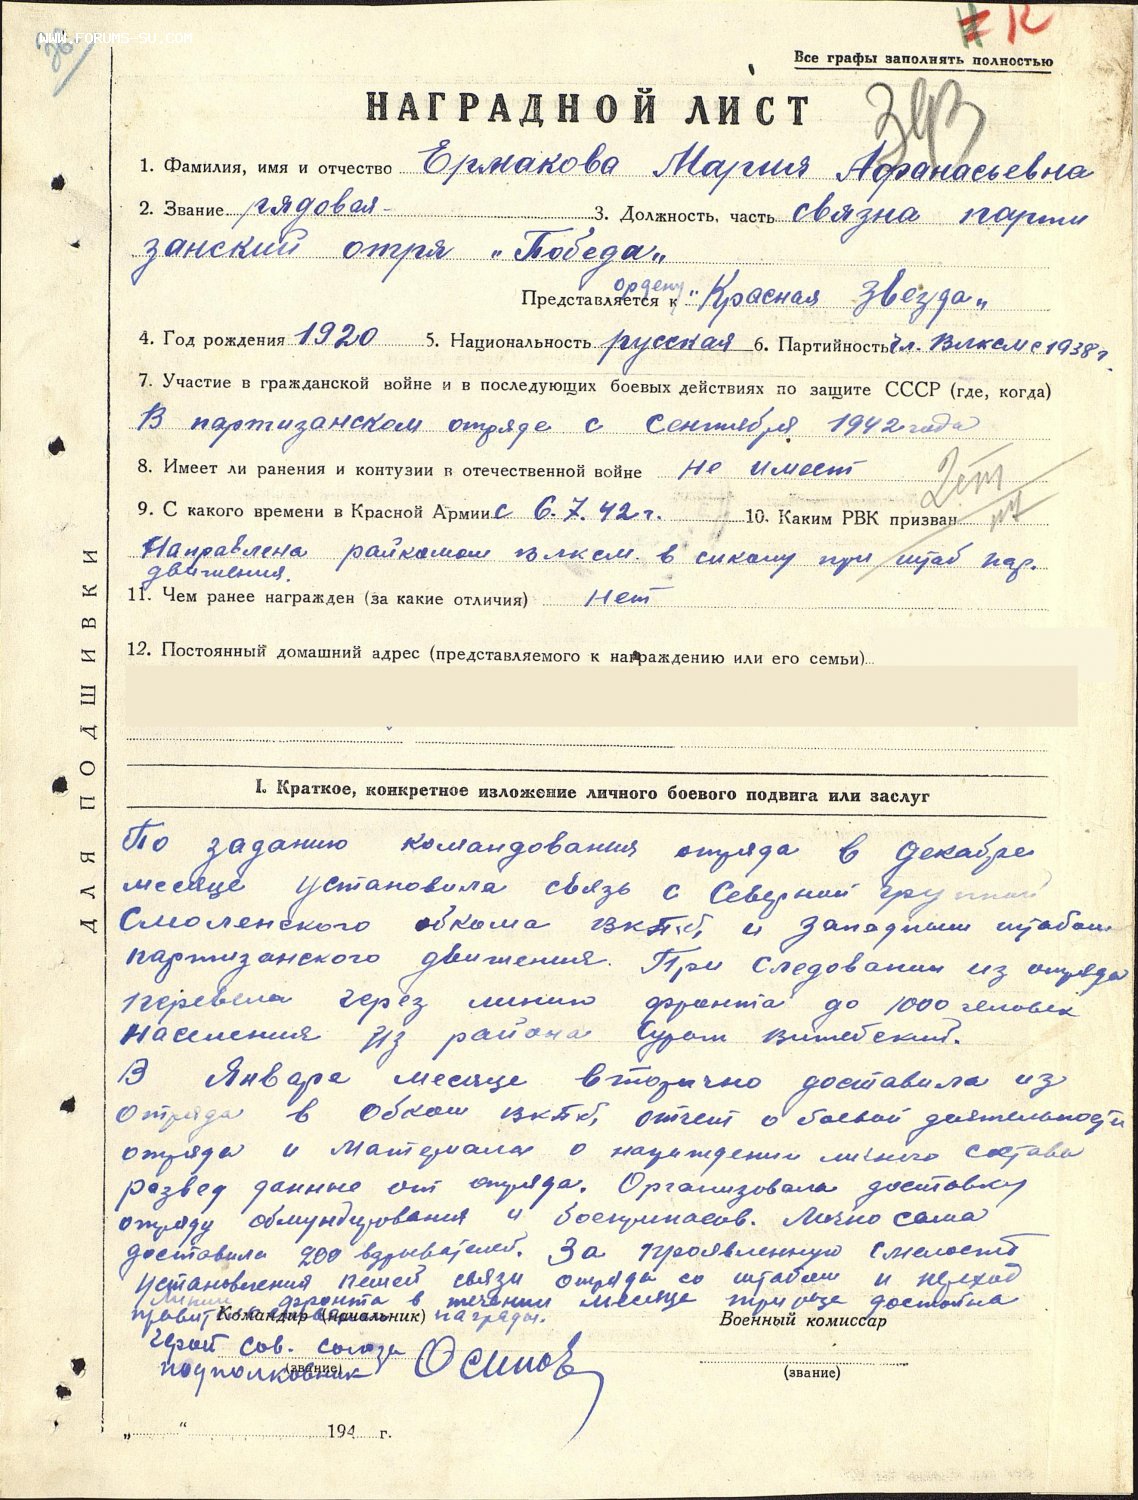 WWW.FORUMS-SU.COM
Все графы заполнять полностью
НАГРАДНОЙ ЛИСТ
393
1. Фамилия, имя и отчество Ермакова Мария Афанасьевна
2. Звание рядовая 3. Должность, часть связна парти
занский отря „Победа„
ордену
Представляется к „Красная Звезда„
4. Год рождения 1920 5. Национальность русская 6. Партийность чл. ВЛКСМ с 1938 г.
7. Участие в гражданской войне и в последующих боевых действиях по защите СССР (где, когда)
В партизанском отряде с Сентября 1942 года
8. Имеет ли ранения и контузии в отечественной войне не имеет
9. С какого времени в Красной Армии с 6.7.42 г. 10. Каким РВК призван
Направлена райкомом ВЛКСМ в школу при штаб пар.
движения.
11. Чем ранее награжден (за какие отличия) Нет
12. Постоянный домашний адрес (представляемого к награждению или его семьи)
I. Краткое, конкретное изложение личного боевого подвига или заслуг
По заданию командования отряда в декабре
месяце установила связь с Северной группой
Смоленского обкома ВКПб, и Западным штабом
партизанского движения. При следовании из отряда
перевела через линию фронта до 1000 человек
населения из района Сураж Витебский.
В Январе месяце вторично доставила из
отряда в Обком ВКПб, отчет о боевой деятельности
отряда и материала о награждении личного состава
развед данные от отряда. Организовала доставку
отряду обмундирования и боеприпасов. Лично сама
доставила 200 взрывателей. За проявленную смелость
установления пешей связи отряда со штабом и переход
линии фронта в течении месяце три раза достойна
правит награды.
Командир (начальник) Военный комиссар
Герой Сов. Союза
подполковник Осипов
(звание) (звание)
„ “ 194 г.
ДЛЯ ПОДШИВКИ